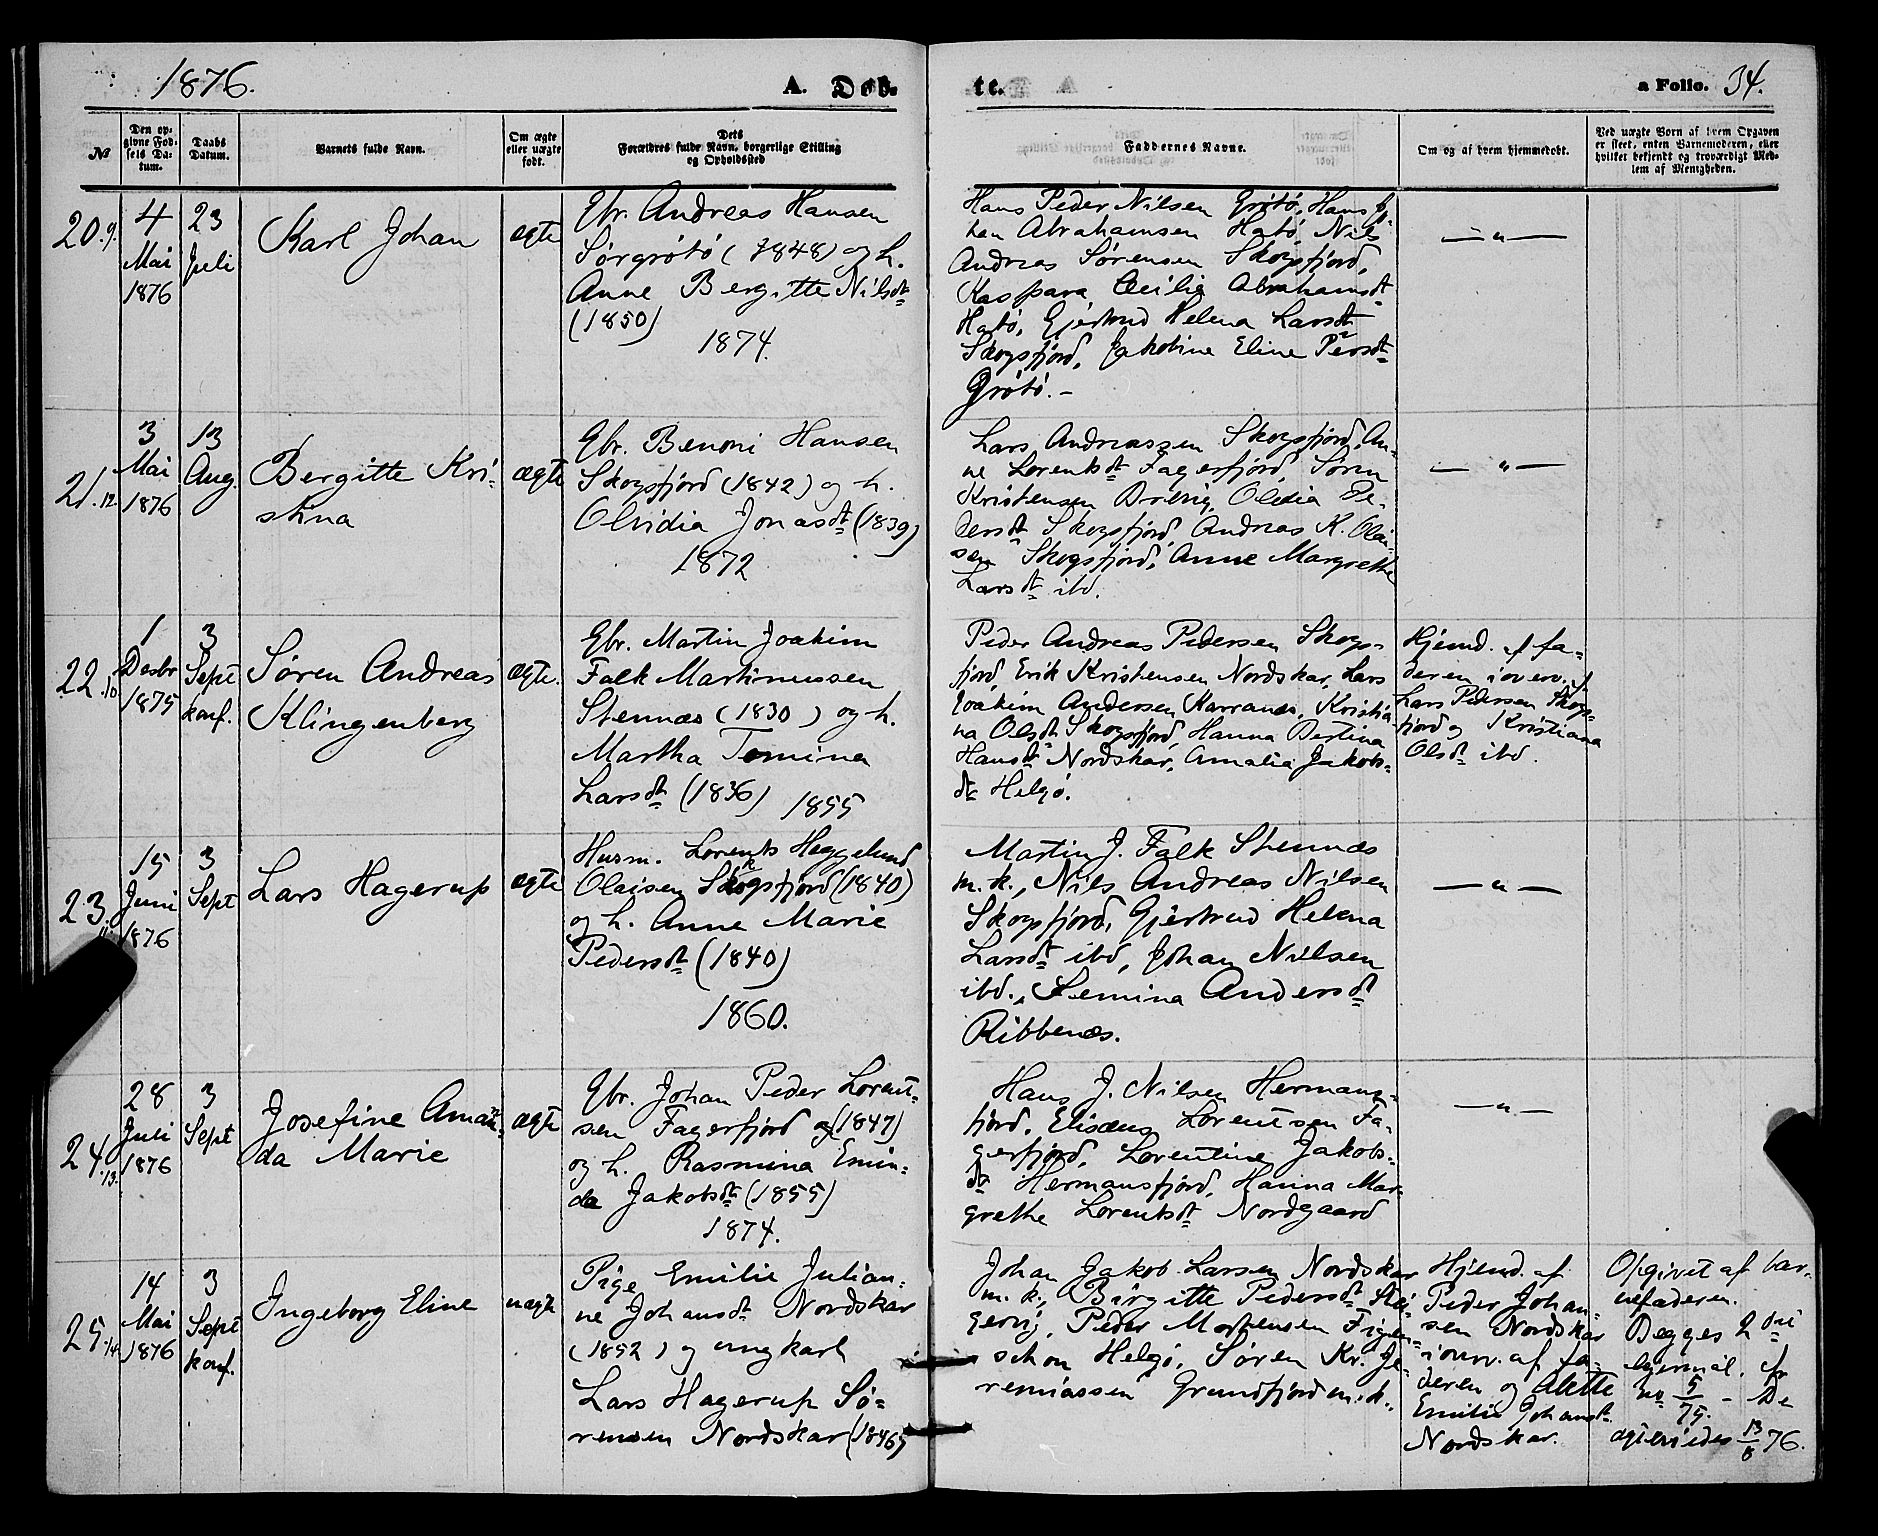 1876.
A. Døb-
te.
a Folio. 34.
№
Den op-
givne Fød-
sels Da-
tum.
Daabs
Datum.
Barnets fulde Navn.
Om ægte
eller uægte
født.
Dets
Forældres fulde Navn, borgerlige Stilling
og Opholdssted
Faddernes Navne.
Om og af hvem hjemmedøbt.
Ved uægte Børn af hvem Opgaven
er skeet, enten Barnemoderen, eller
hvilket bekjendt og troværdigt Med-
lem af Menigheden.
20.9.
4
Mai
1876
23
Juli
Karl Johan
ægte
Gbr. Andreas Hansen
Sørgrötö (1848) og h.
Anne Bergitte Nilsdt
(1850)
1874.
Hans Peder Nilsen Grötö, Hans
Abrahamsen Hatö, Nils
Andreas Sørensen Skogsfjord,
Kaspara Cecilie Abrahamsdt
Hatö, Gjertrud Helena Larsdt
Skogsfjord, Jakobine Eline Persdt
Grötö.-
— " —
21.12.
3
Mai
1876
13
Aug.
Bergitte Kri-
stina
ægte
Gbr. Benoni Hansen
Skogsfjord (1842) og h.
Olvidia Jonasdt (1839)
1872
Lars Andreassen Skogsfjord, An-
ne Lorentsdt Fagerfjord, Sören
Kristensen Dreng, Olidia Pe-
dersdt Skogsfjord, Andreas K. Olai-
sen Skogsfjord, Anne Margrethe
Larsdt ibd.
— " —
22.10
1
Desbr
1875
3
Sept
konf.
Sören Andreas
Klingenberg
ægte.
Gbr. Martin Joakim
Falk Martinussen
Stennæs (1830) og h.
Martha Tomina
Larsdt (1836) 1855
Peder Andreas Pedersen Skogs-
fjord, Erik Kristensen Nordskar, Lars
Joakim Andersen Karranæs, Kristia-
na Olsdt Skogsfjord, Hanna Bertina
Hansdt Nordskar, Amalia Jakobs-
dt Helgö.
Hjemd. af fa-
deren i overv. af
Lars Pedersen Skogs-
fjord og Kristiana
Olsdt ibd.
23.
15
Juni
1876
3
Sept
Lars Hagerup
ægte
Husm. Lorents Heggelund
Olaisen Skogsfjord (1840)
og h. Anne Marie
Pedersdt (1840)
1860.
Martin J. Falk Stennæs
m.k., Nils Andreas Nilsen
Skogsfjord, Gjertrud Helena
Larsdt ibd, Johan Nilsen
ibd., Semina Andersdt
Ribbenæs.
— " —
24.13.
28
Juli
1876
3
Sept
Josefine Aman-
da Marie
ægte
Gbr. Johan Peder Lorent-
sen Fagerfjord (1847)
og h. Rasmina Emin-
da Jakobsdt (1855)
1874.
Hans J. Nilsen Hermans-
fjord, Elisæus Lorentsen Fa-
gerfjord, Lorentine Jakobs-
dt Hermansfjord, Hanna Mar-
grethe Lorentsdt Nordgaard
— " —
25.14.
14
Mai
1876
3
Sept
konf.
Ingeborg Eline
uægte
Pige Emilie Julian-
ne Johansdt Nordskar
(1852) og ungkarl
Lars Hagerup Sö-
rensen Nordskar (1846)
Johan Jakob Larsen Nordskar
m.k., Birgitte Pedersdt
Peder Mortensen Figen-
schou Helgö, Sören Kr. Je-
remiassen Grundfjord m.k..
Hjemd. af
Peder Johan-
sen Nordskar
i overv. af fa-
deren og Alette
Emilie Johansdt
Nordskar.
Opgivet af bar-
nefaderen.
Begges 2det
leiermål. fr
no 5/75. - De
ægteviedes 13/8 76.